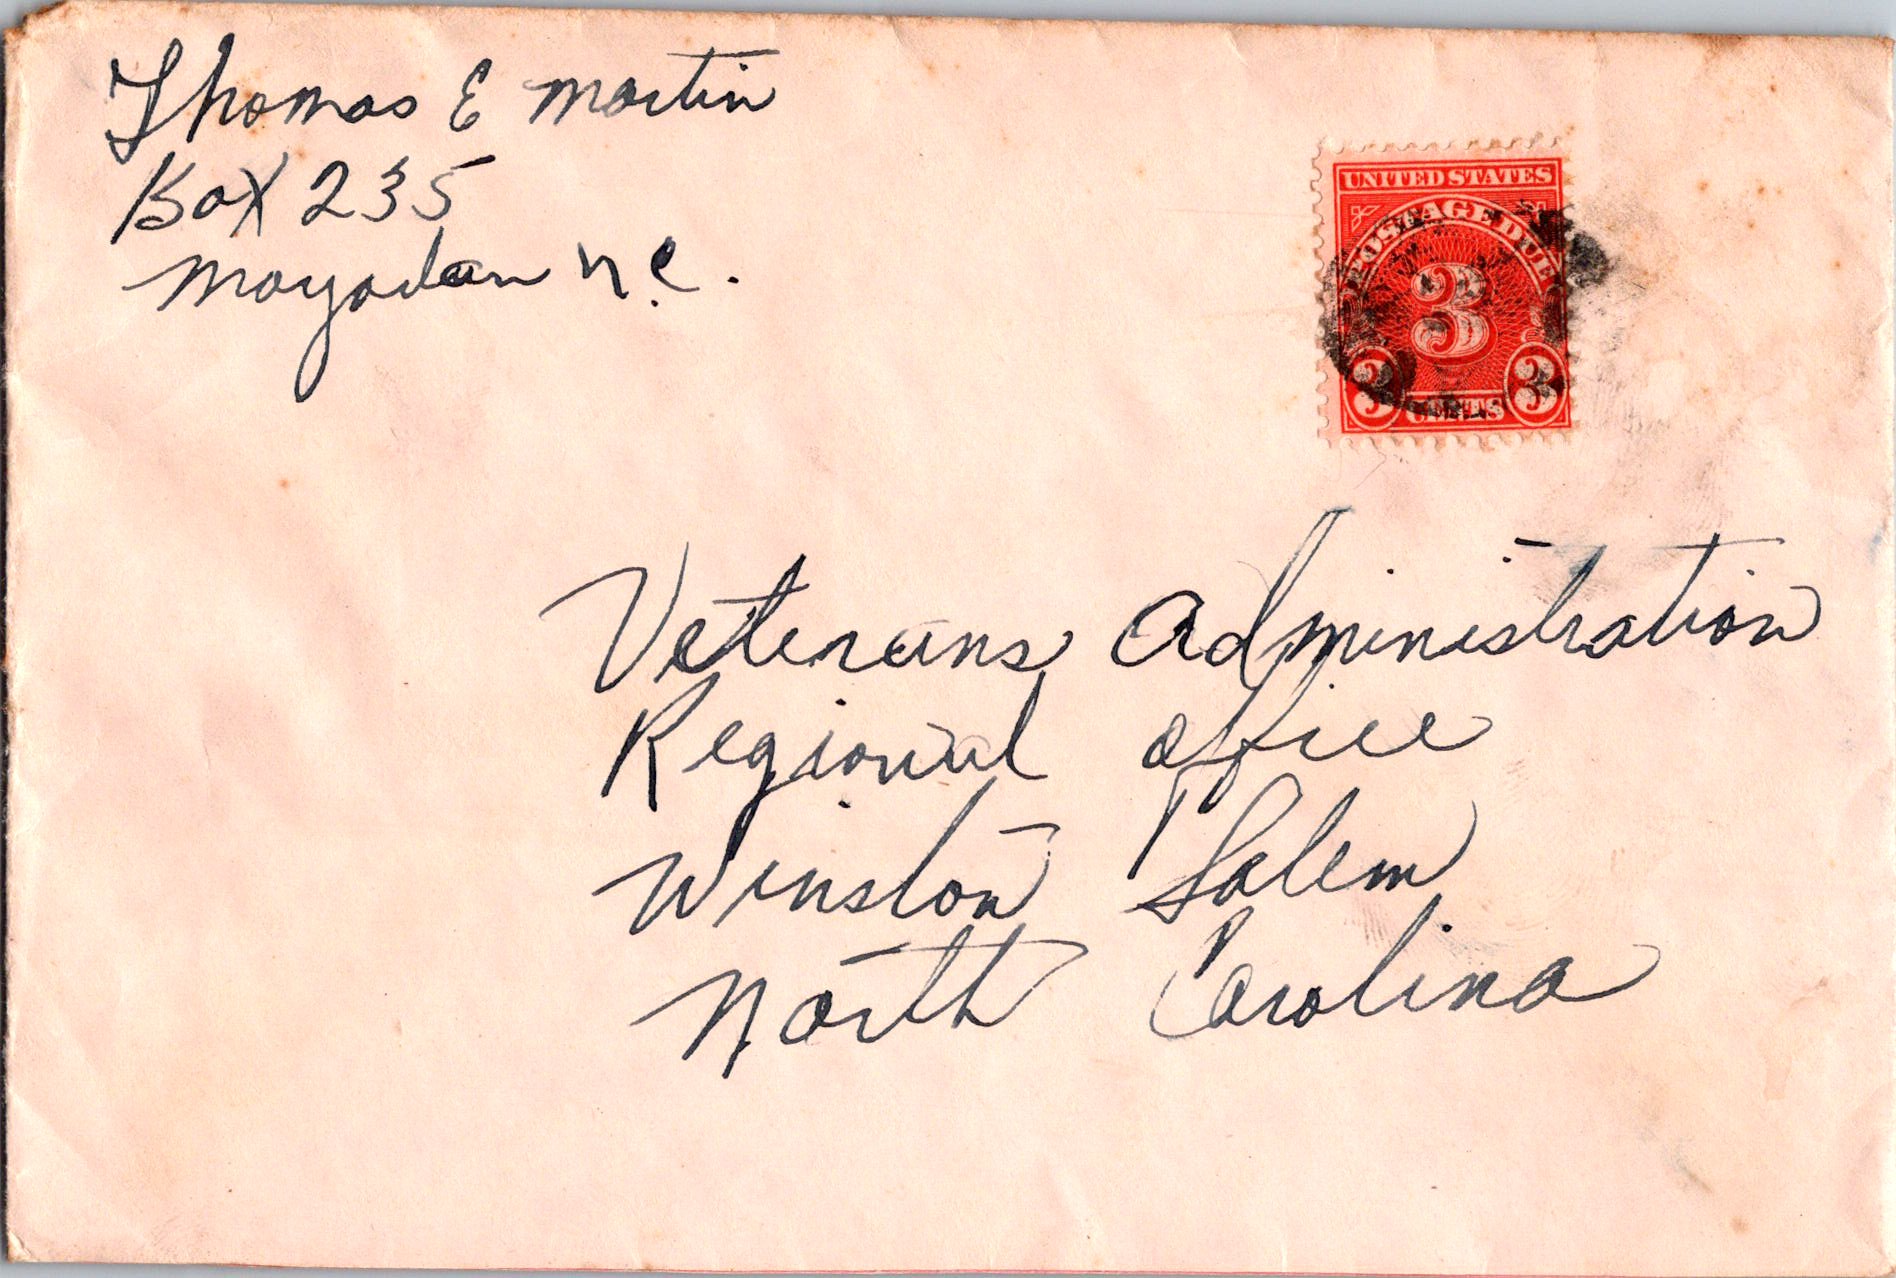 Thomas E Martin
Box 235
Mayodan N.C.
UNITED STATES
POSTAGE DUE
3
3 CENTS 3
Veterans Administration
Regional office
Winston Salem
North Carolina